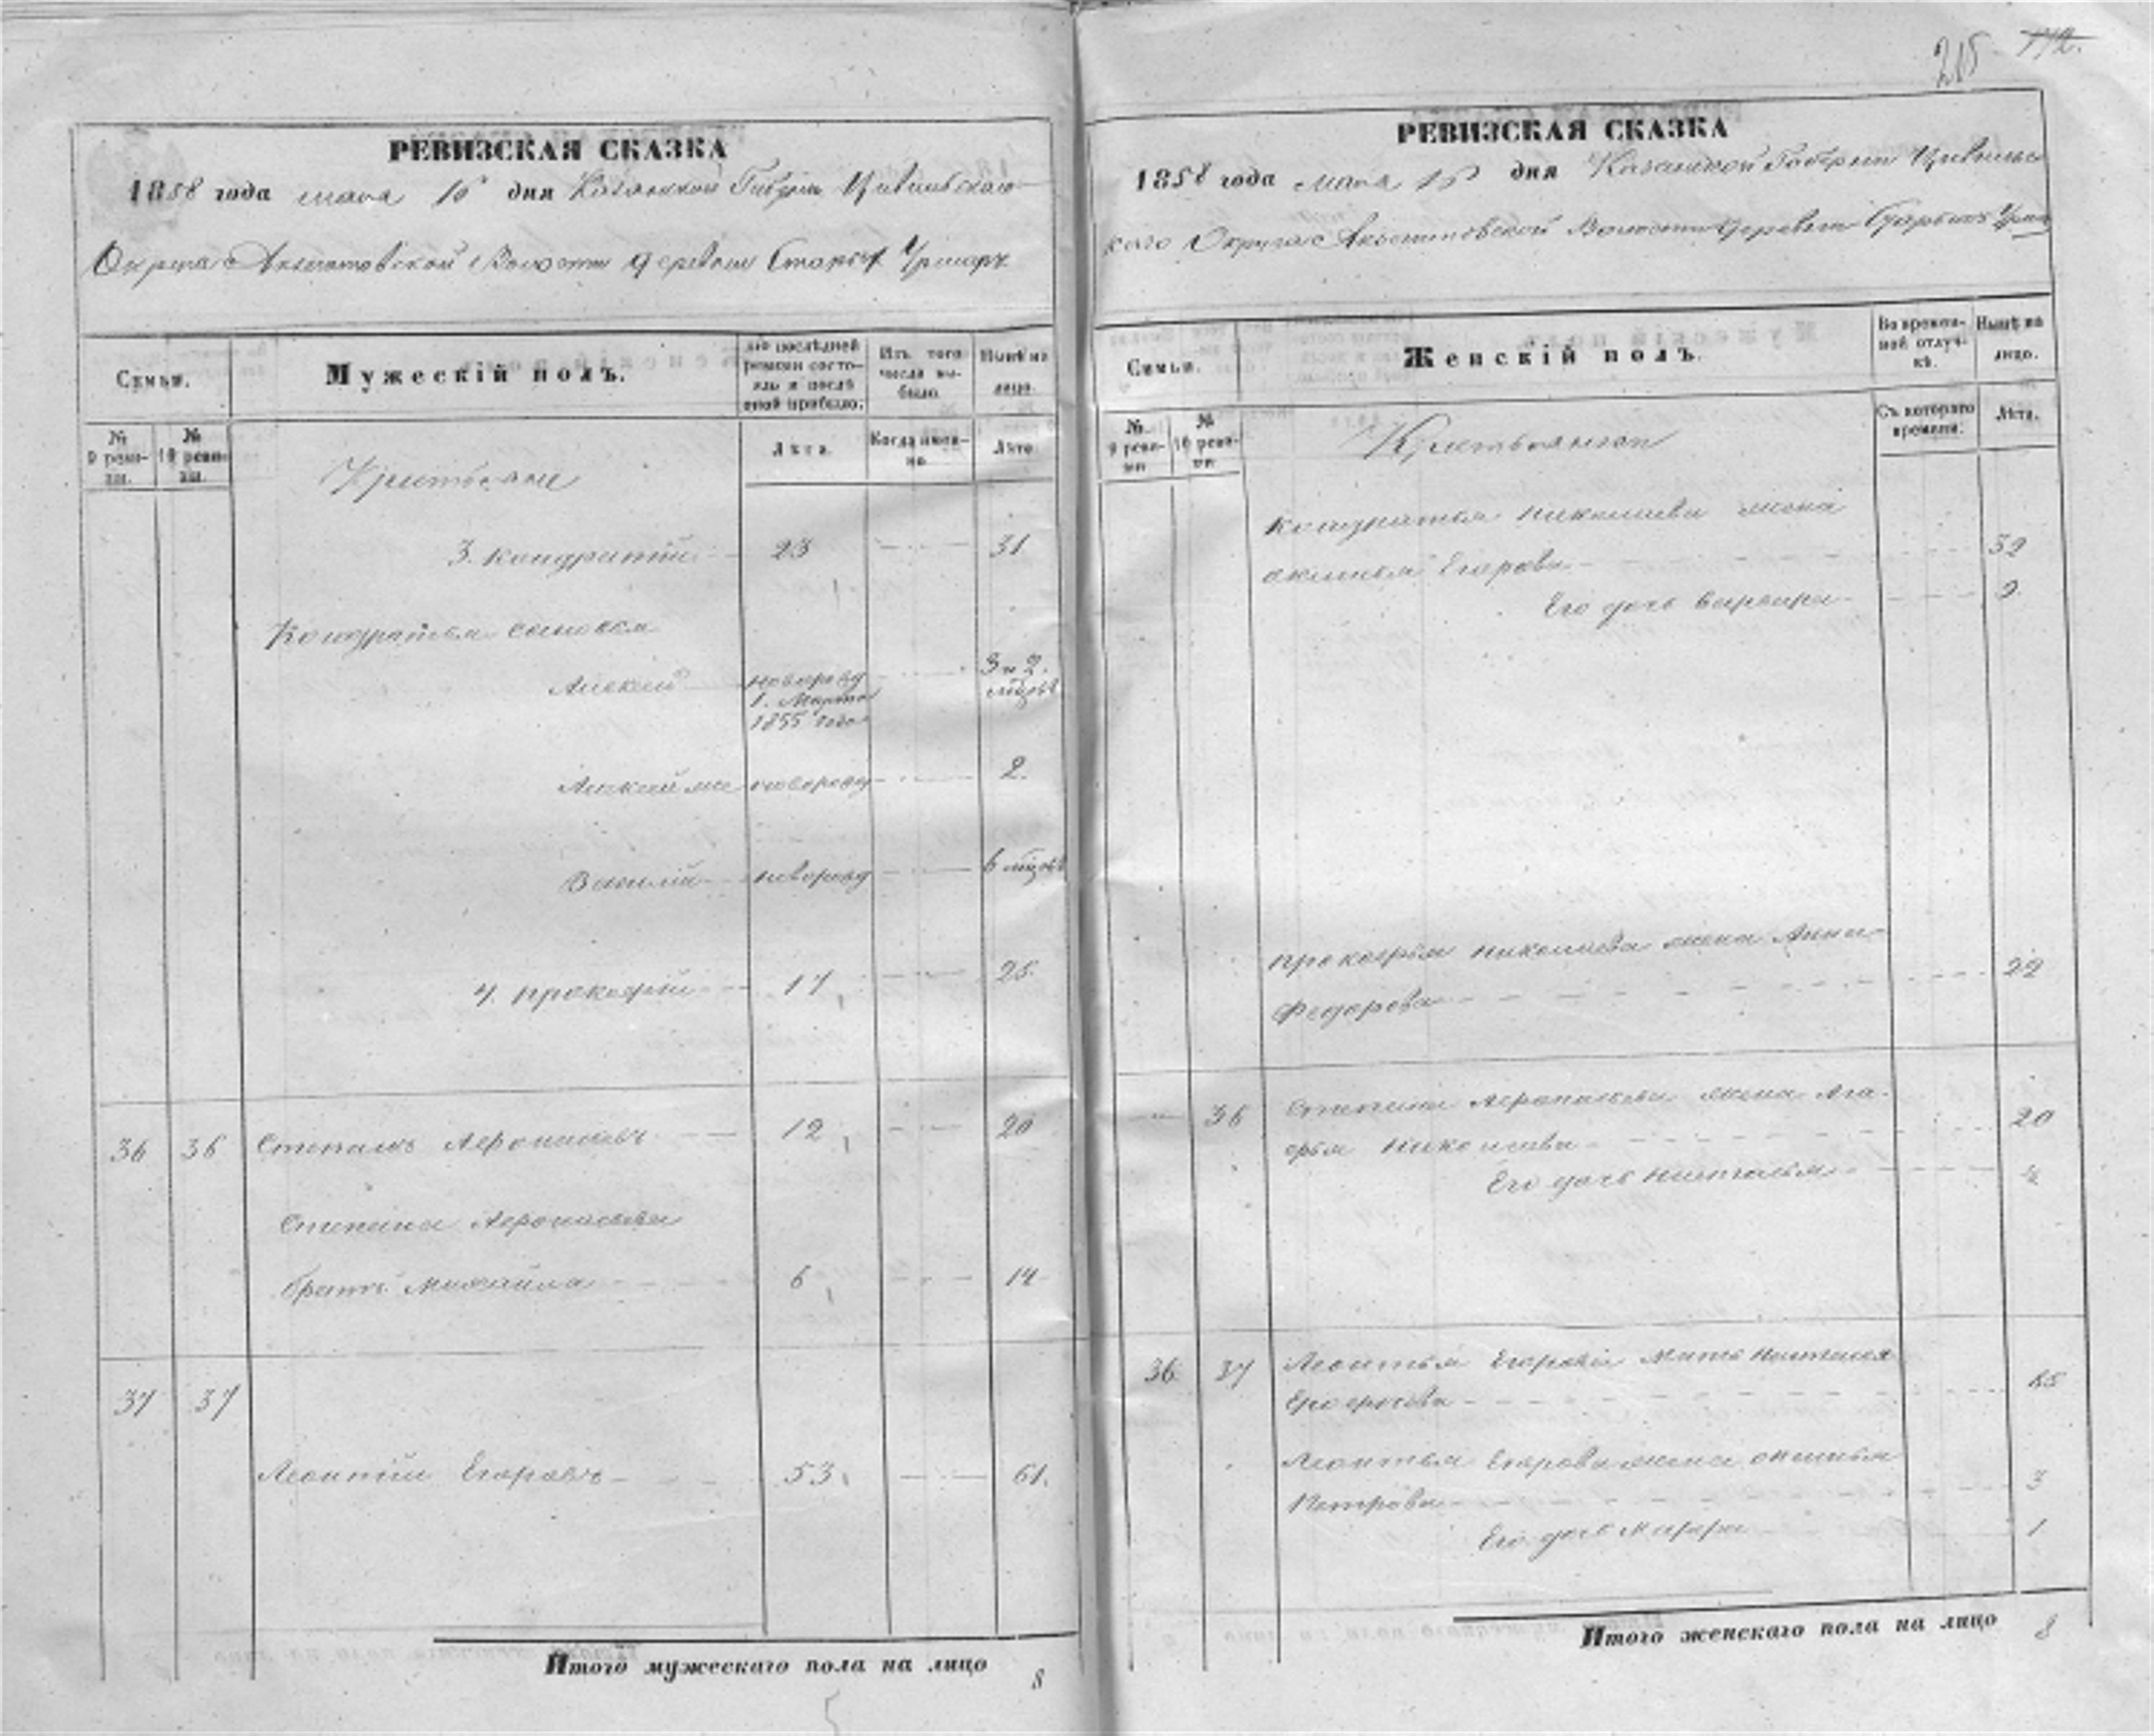 215 112.
РЕВИЗСКАЯ СКАЗКА
1858 года мая 15 дня Казанской Губерніи Цивильскаго
Округа Акзегитовской Волости деревни Старыхъ Урмаръ
Семьи.
Мужескій полъ.
По послѣдней ревизіи состояло и послѣ оной прибыло.
Изъ того числа выбыло.
Нынѣ на лицо.
№ 9 ревизіи.
№ 10 ревизіи.
Лѣта.
Когда именно.
Лѣта.
Крестьяне
3. Кондратій 23 31
Кондратья сыновья
Алексей новорожд 1. Марта 1855 года 3 и 2. мѣсяцъ
Алексей же новорожд 2.
Василій новорожд 6 мѣсяцъ
4. Прокофій 17 25
36 36 Степанъ Афонасьевъ 12 20
Степана Афонасьева
братъ Михайла 6 14
37 37
Леонтій Егоровъ 53 61.
Итого мужескаго пола на лицо 8
РЕВИЗСКАЯ СКАЗКА
1858 года мая 15 дня Казанской Губерніи Цивильс
каго Округа Акзегитовской Волости деревни Старыхъ Урмаръ
Семьи.
Женскій полъ.
Во временной отлучкѣ.
Нынѣ на лицо.
№ 9 ревизіи
№ 10 ревизіи
Съ котораго времени.
Лѣта.
Крестьянскій
Кондратья Николаева жена
Акилина Егорова 32
Его дочь Варвара 9
Прокофья Николаева жена Анна
Федорова 22
36 Степана Афонасьева жена Ага-
фья Николаева 20
Его дочь Наталья
36 37 Леонтья Егорова мать Настасья
Ерофеева
Леонтья Егорова жена
Петрова 3
Его дочь Марфа 1
Итого женскаго пола на лицо 8